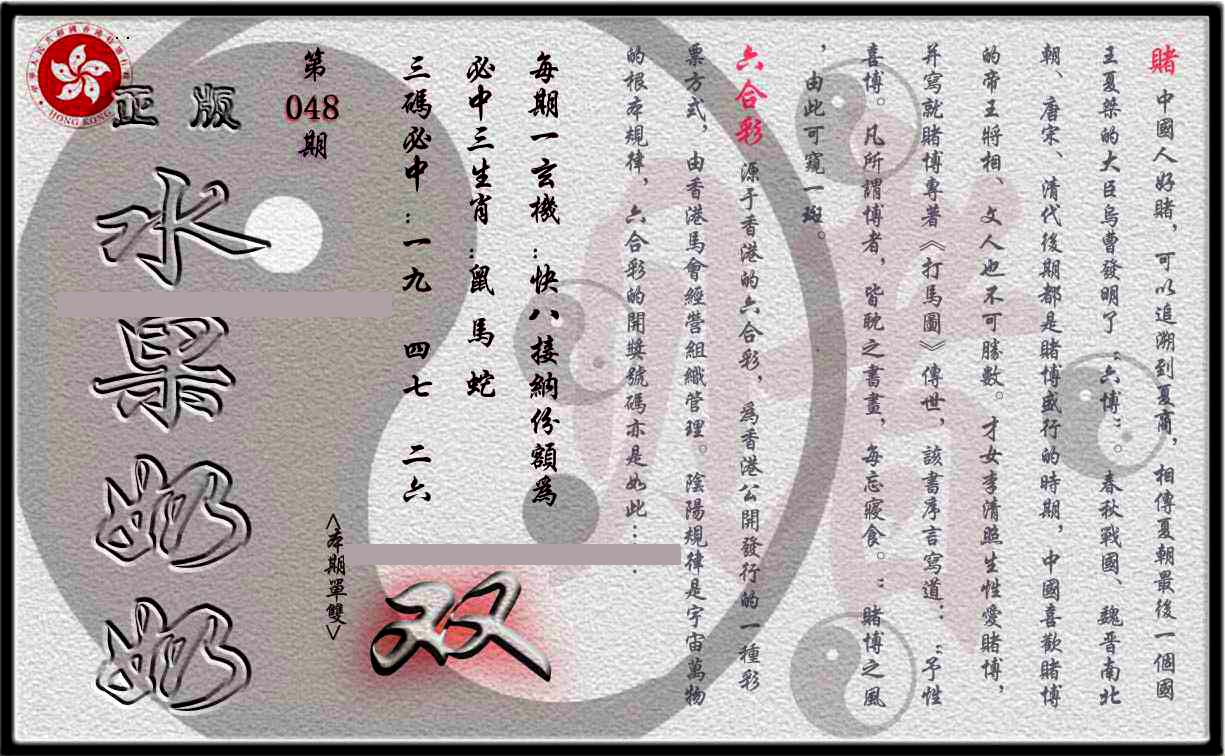 賭 中國人好賭，可以追溯到夏商，相傳夏朝最後一個國
王夏桀的大臣烏曹發明了“六博”。春秋戰國、魏晉南北
朝、唐宋、清代後期都是賭博盛行的時期，中國喜歡賭博
的帝王將相、文人也不可勝數。才女李清照生性愛賭博，
并寫就賭博專著《打馬圖》傳世，該書序言寫道：“予性
喜博。凡所謂博者，皆耽之書畫，每忘寢食。”賭博之風
，由此可窺一斑。
六合彩 源于香港的六合彩，為香港公開發行的一種彩
票方式，由香港馬會經營組織管理。陰陽規律是宇宙萬物
的根本規律，六合彩的開獎號碼亦是如此……
每期一玄機：快八接納份額為
必中三生肖：鼠 馬 蛇
三碼必中：一九 四七 二六
<本期單雙>
双
第
048
期
正版
水果奶奶
HONG KONG